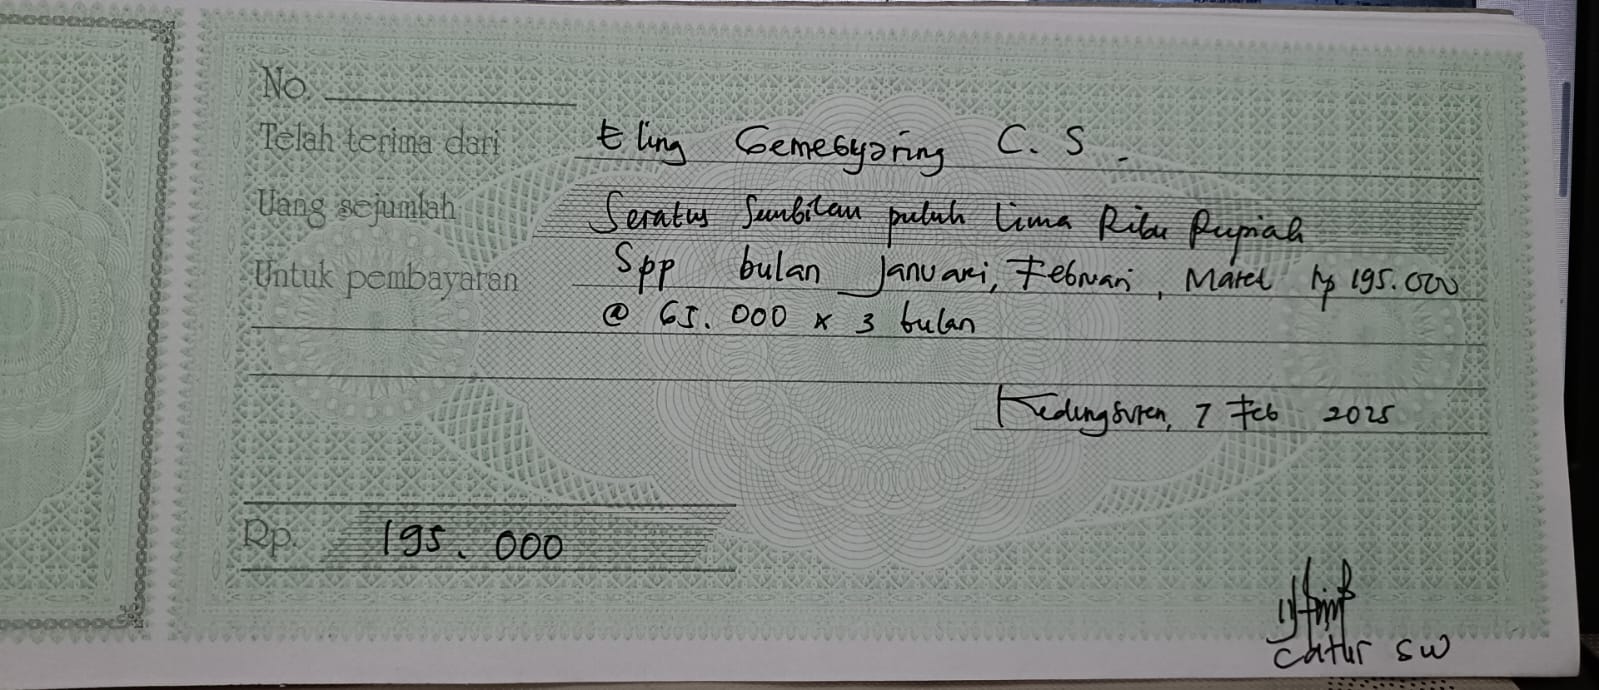 No.
Telah terima dari Eling Gemebyaring C. S.
Uang sejumlah Seratus Sembilan puluh lima Ribu Rupiah
Untuk pembayaran Spp bulan Januari, Februari, Maret Rp 195.000
@ 65.000 x 3 bulan
Kedungsuren, 7 Feb 2025
Rp. 195.000
Catur SW